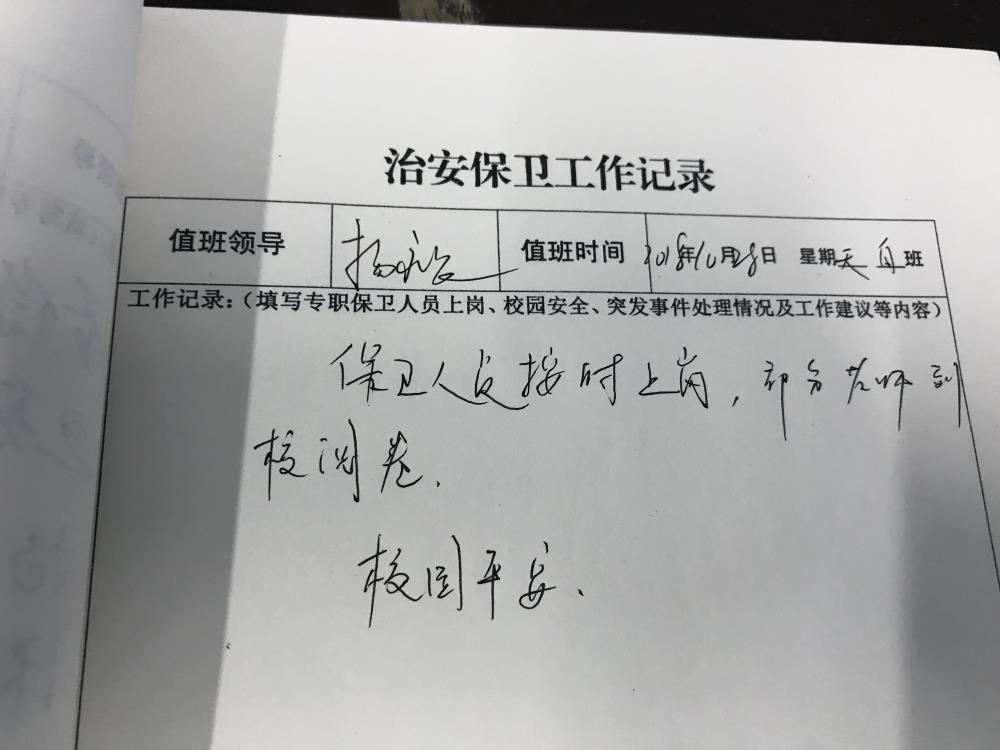 治安保卫工作记录
值班领导 杨 值班时间 2018年10月28日 星期天 白班
工作记录：（填写专职保卫人员上岗、校园安全、突发事件处理情况及工作建议等内容）
保卫人员按时上岗，部分老师到
校阅卷.
校园平安.